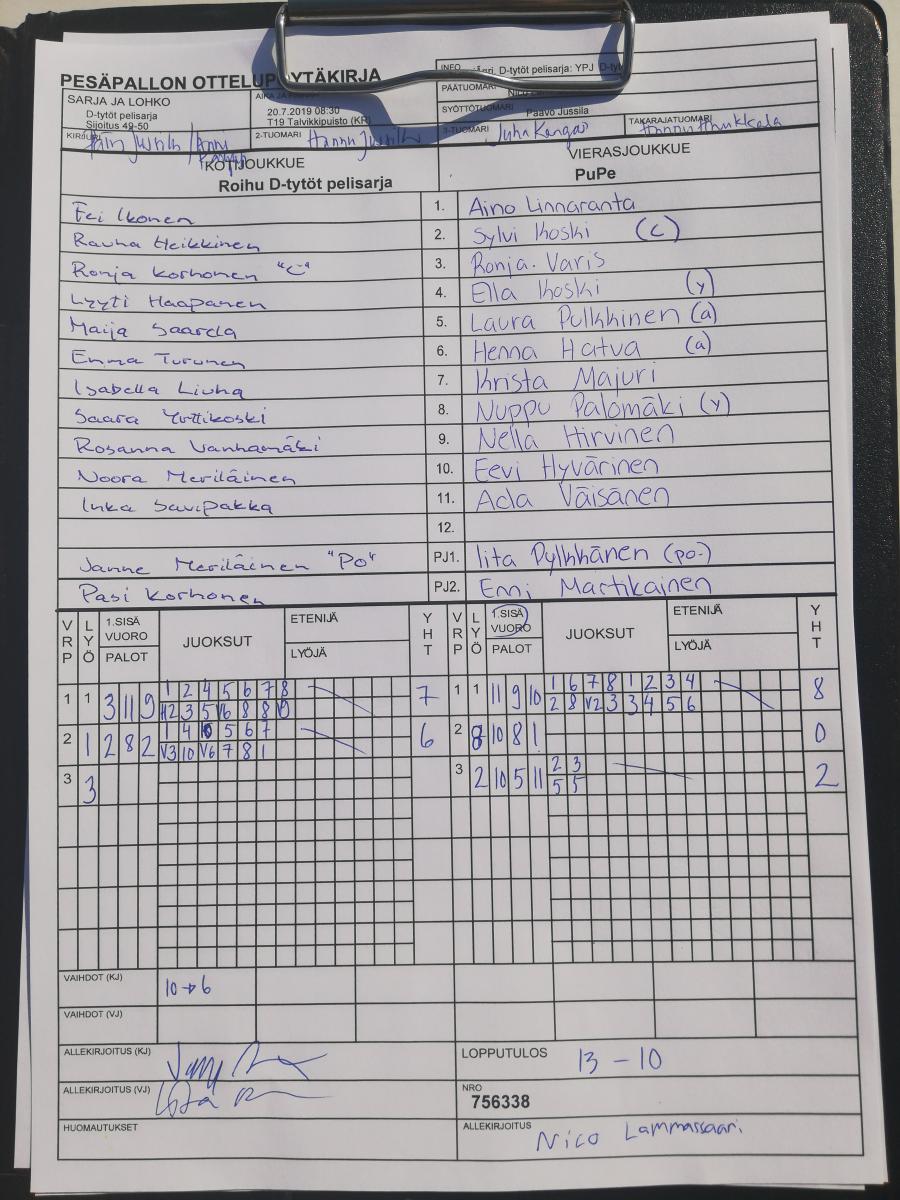 PESÄPALLON OTTELUPÖYTÄKIRJA
INFO
D-tytöt pelisarja: YPJ D-tyt
SARJA JA LOHKO
D-tytöt pelisarja
Sijoitus 49-50
AIKA JA
20.7.2019 08:30
T19 Talvikkipuisto (KR)
PÄÄTUOMARI
SYÖTTÖTUOMARI
Paavo Jussila
KIRJURI
2-TUOMARI
Hannu
3-TUOMARI
Juha Kangas
TAKARAJATUOMARI
KOTIJOUKKUE
Roihu D-tytöt pelisarja
VIERASJOUKKUE
PuPe
Eei Ikonen 1. Aino Linnaranta
Rauha Heikkinen 2. Sylvi Koski (C)
Ronja Korhonen "C" 3. Ronja Varis
Lyyti Haapanen 4. Ella Koski (y)
Maija Saarela 5. Laura Pulkkinen (a)
Emma Turunen 6. Henna Hatva (a)
Isabella Liuha 7. Krista Majuri
Saara Yrttikoski 8. Nuppu Palomäki (y)
Rosanna Vanhamäki 9. Nella Hirvinen
Noora Meriläinen 10. Eevi Hyvärinen
Inka Savipakka 11. Ada Väisänen
12.
Janne Meriläinen "Po" PJ1. Iita Pylkkänen (po-)
Pasi Korhonen PJ2. Enni Martikainen
VRP LYÖ 1.SISÄ VUORO PALOT JUOKSUT ETENIJÄ LYÖJÄ YHT VRP LYÖ 1.SISÄ VUORO PALOT JUOKSUT ETENIJÄ LYÖJÄ YHT
1 1 3 11 9 1 2 4 5 6 7 8 7 1 1 11 9 10 1 6 7 8 1 2 3 4 8
3 5 V6 8 8 2 8 V2 3 3 4 5 6
2 1 2 8 2 1 4 5 6 7 6 2 8 10 8 1 0
V3 10 V6 7 8 1
3 3 3 2 10 5 11 2 3 2
5 5
VAIHDOT (KJ) 10→6
VAIHDOT (VJ)
ALLEKIRJOITUS (KJ)
LOPPUTULOS 13 - 10
ALLEKIRJOITUS (VJ)
NRO
756338
HUOMAUTUKSET
ALLEKIRJOITUS Nico Lammassaari